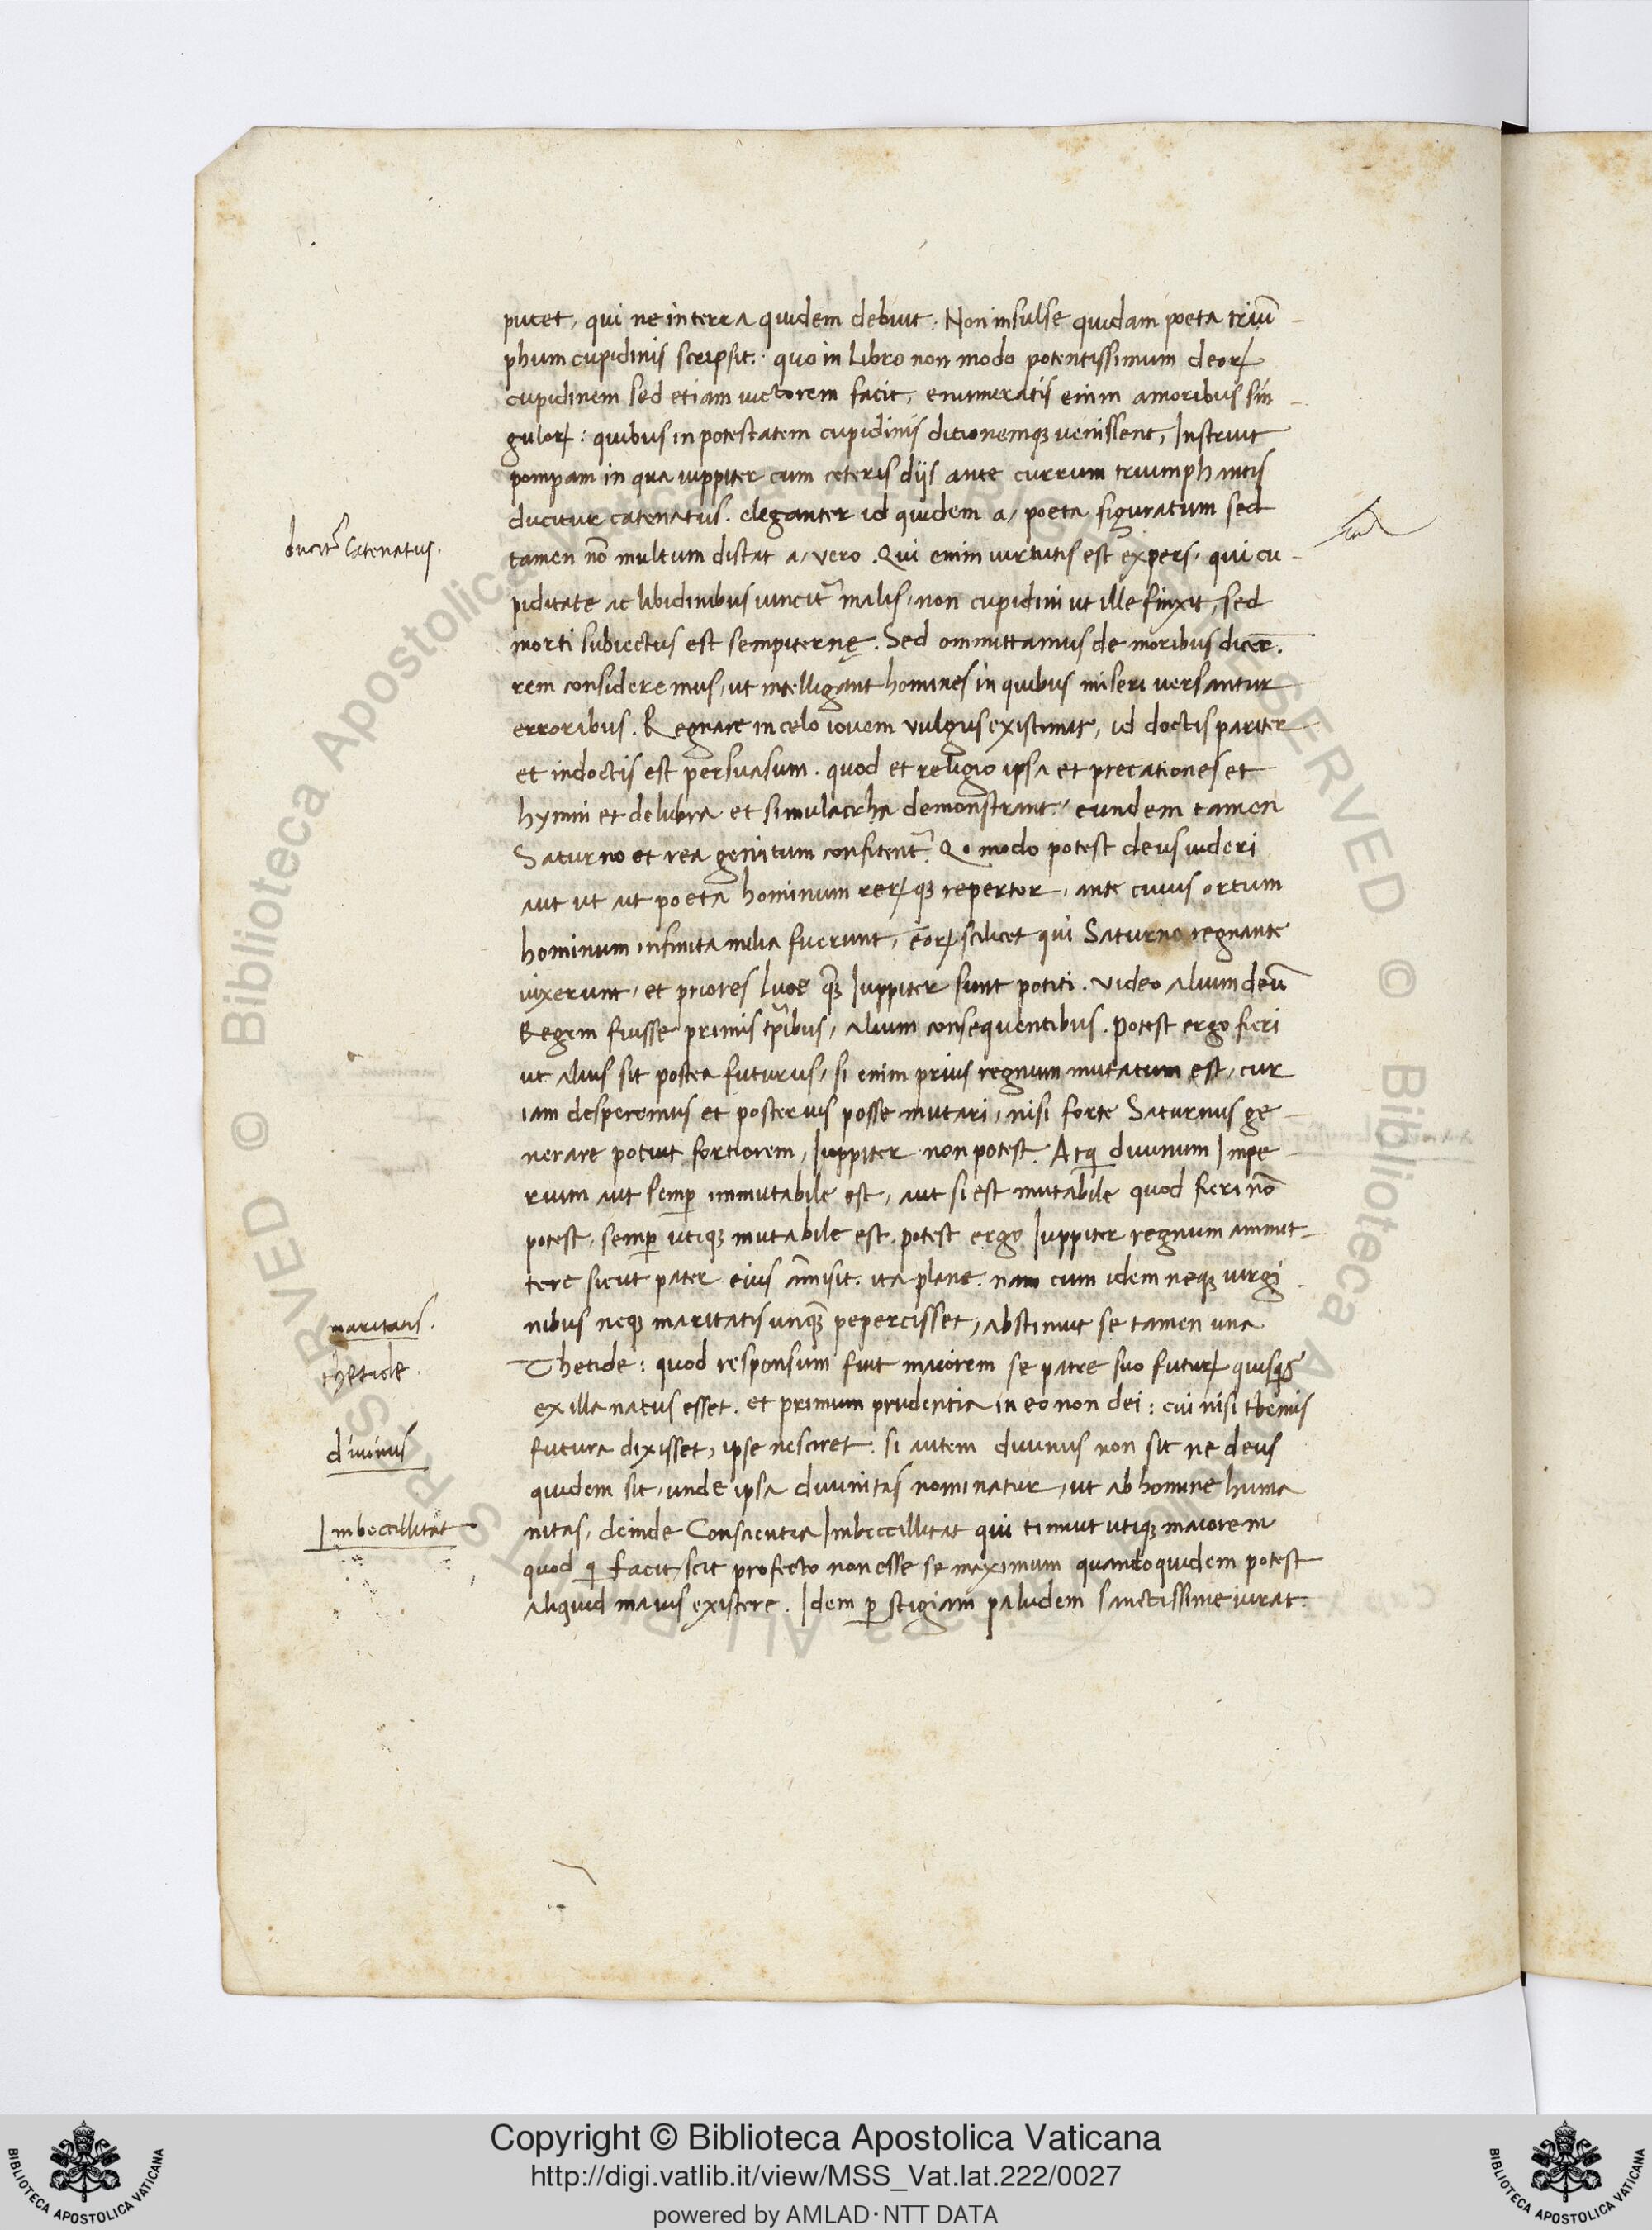 putet, qui ne in terra quidem debuit: Non insulse quidam poeta triũ-
phum cupidinis scripsit: quo in libro non modo potentissimum deoꝝ
cupidinem sed etiam uictorem facit, enumeratis enim amoribus sin-
guloꝝ: quibus in potestatem cupidinis ditionemqꝫ uenissent, Instruit
pompam in qua iuppiter cum ceteris dijs ante currum triumphantis
ducitur catenatus. eleganter id quidem a/ poeta figuratum sed
ducit᷑ Catenatus.
tamen nõ multum distat a/ vero. Qui enim uirtutis est expers, qui cu-
piditate ac libidinibus uincit᷑ malis, non cupidini ut ille finxit, sed
morti subiectus est sempiternę. Sed ommittamus de moribus dicer̃.
rem consideremus, ut intelligant homines in quibus miseri uersantur
erroribus. Regnare in celo iouem vulgus existimat, id doctis pariter
et indoctis est persuasum. quod et religio ipsa et precationes et
hymni et delubra et simulacrha demonstrant, eundem tamen
Saturno et rea genitum confitent᷑. Qo modo potest deus uideri
aut ut ait poeta hominum reꝝqꝫ repertor, ante cuius ortum
hominum infinita milia fuerunt, eoꝝ scilicet qui Saturno regnante
uixerunt, et priores luce qꝫ̃ Iuppiter sunt potiti. Video alium deũ
Regem fuisse primis tp̃ibus, alium consequentibus. Potest ergo fieri
ut alius sit postea futurus, si enim prius regnum mutatum est, cur
iam desperemus et posterius posse mutari, nisi forte Saturnus ge-
nerare potuit fortiorem, Iuppiter non potest. Atqi diuinum Impe-
rium aut semꝑ immutabile est, aut si est mutabile quod fieri nõ
potest, semꝑ utiqꝫ mutabile est. potest ergo Iuppiter regnum ammit-
tere sicut pater eius ãmisit. ita plane. nam cum idem neqꝫ uirgi-
nibus neqꝫ maritatis unqꝫ̃ pepercisset, abstinuit se tamen una
maritatis.
Thetide: quod responsum fuit maiorem se patre suo futuꝝ quisqs
thetide.
ex illa natus esset. et primum prudentia in eo non dei: cui nisi themis
futura dixisset, ipse nesciret: si autem diuinus non sit ne deus
diuinus
quidem sit, unde ipsa diuinitas nominatur, ut ab homine huma
nitas, deinde Conscientia Imbeccillitat qui timuit utiqꝫ maiorem
Imbeccillitat
quod qi facit, scit profecto non esse se maximum quandoquidem potest
aliquid maius existere. Idem ꝑ stigiam paludem sanctissime iurat.
Copyright © Biblioteca Apostolica Vaticana
http://digi.vatlib.it/view/MSS_Vat.lat.222/0027
powered by AMLAD·NTT DATA
BIBLIOTECA APOSTOLICA VATICANA
BIBLIOTECA APOSTOLICA VATICANA